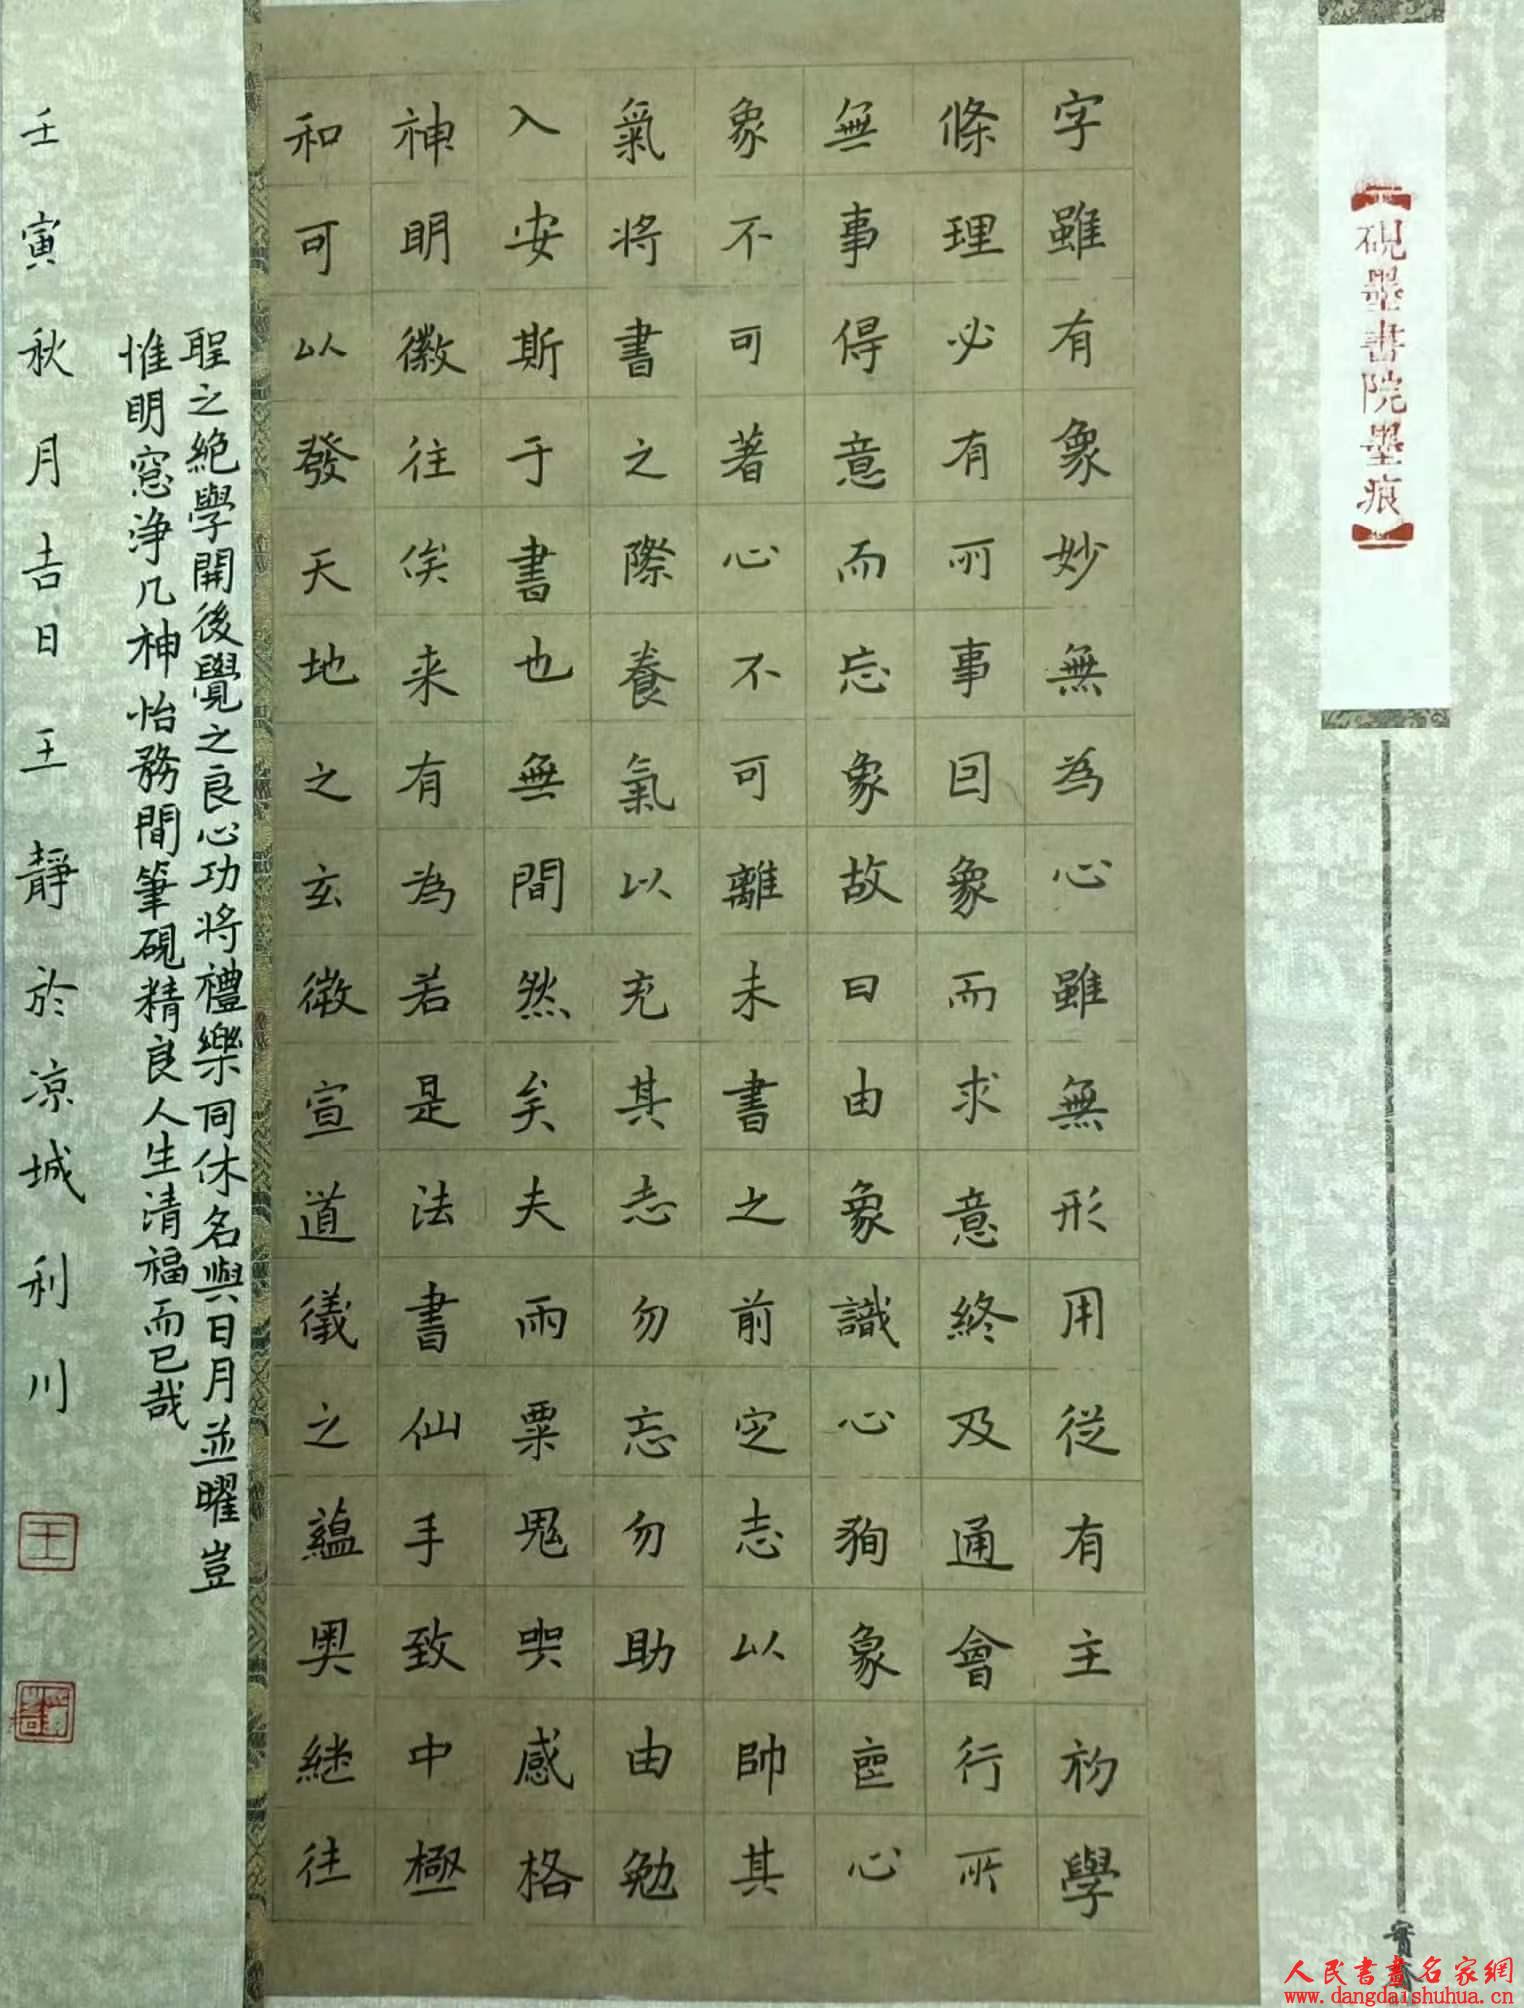 【硯墨書院墨痕】
字雖有象妙無為心雖無形用從有主初學
條理必有所事因象而求意終及通會行所
無事得意而忘象故曰由象識心狥象喪心
象不可著心不可離未書之前定志以帥其
氣將書之際養氣以充其志勿忘勿助由勉
入安斯于書也無間然矣夫雨粟鬼哭感格
神明徽往俟来有為若是法書仙手致中極
和可以發天地之玄微宣道儀之蘊奥継往
聖之絶學開後覺之良心功將禮樂同休名與日月並曜豈
惟明窓浄几神怡務間筆硯精良人生清福而已哉
壬寅秋月吉日王靜於凉城利川
王
人民書畫名家網
www.dangdaishuhua.cn